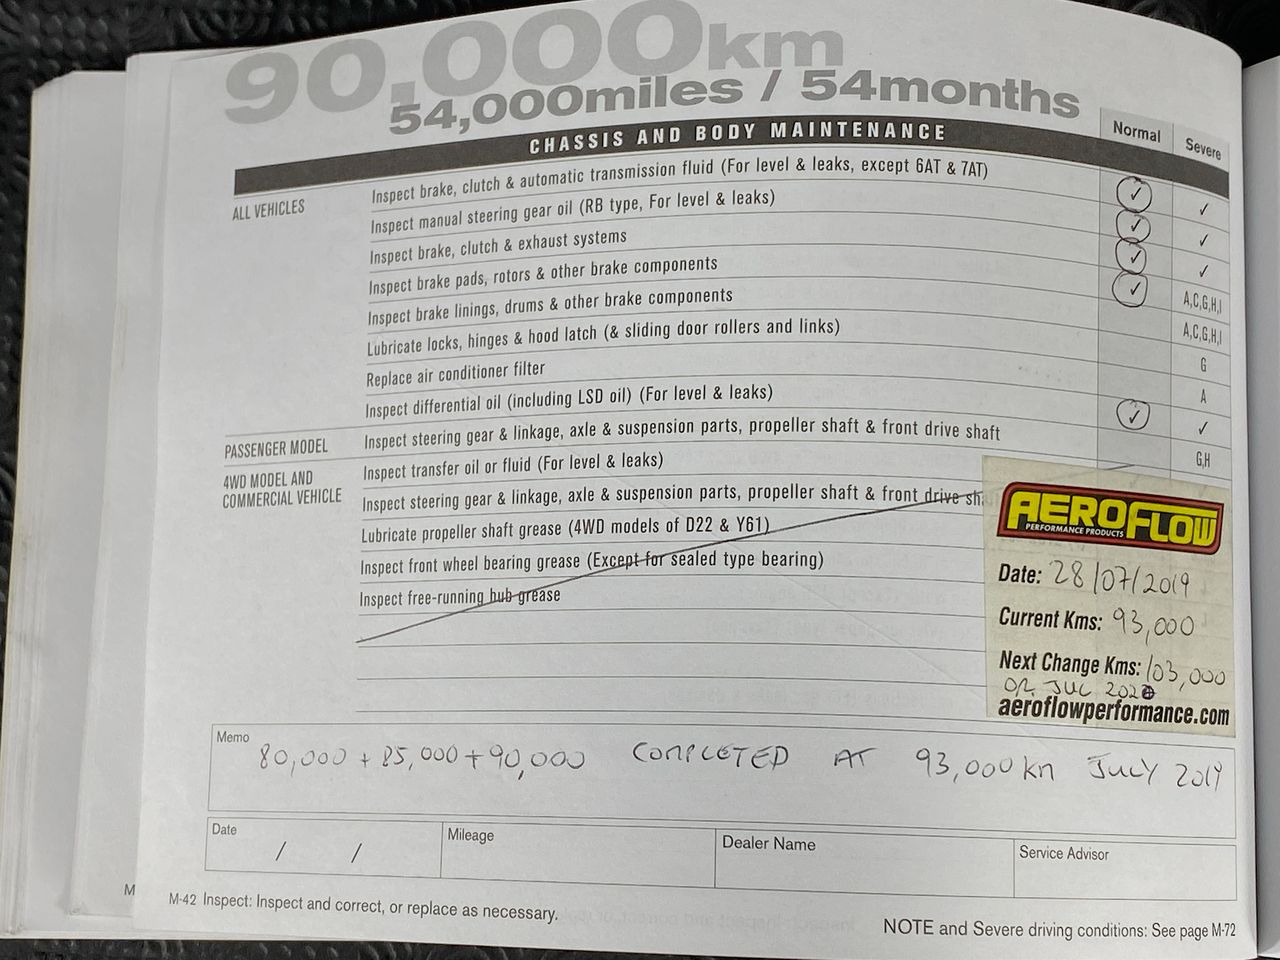 90,000km
54,000miles / 54months
CHASSIS AND BODY MAINTENANCE
Normal
Severe
ALL VEHICLES
Inspect brake, clutch & automatic transmission fluid (For level & leaks, except 6AT & 7AT) ✓ ✓
Inspect manual steering gear oil (RB type, For level & leaks) ✓ ✓
Inspect brake, clutch & exhaust systems ✓ ✓
Inspect brake pads, rotors & other brake components ✓ A,C,G,H,I
Inspect brake linings, drums & other brake components A,C,G,H,I
Lubricate locks, hinges & hood latch (& sliding door rollers and links) G
Replace air conditioner filter A
Inspect differential oil (including LSD oil) (For level & leaks) ✓ ✓
PASSENGER MODEL
Inspect steering gear & linkage, axle & suspension parts, propeller shaft & front drive shaft G,H
4WD MODEL AND
COMMERCIAL VEHICLE
Inspect transfer oil or fluid (For level & leaks)
Inspect steering gear & linkage, axle & suspension parts, propeller shaft & front drive sha
Lubricate propeller shaft grease (4WD models of D22 & Y61)
Inspect front wheel bearing grease (Except for sealed type bearing)
Inspect free-running hub grease
AEROFLOW
PERFORMANCE PRODUCTS
Date: 28/07/2019
Current Kms: 93,000
Next Change Kms: 103,000
OR JUL 2020
aeroflowperformance.com
Memo
80,000 + 85,000 + 90,000 COMPLETED AT 93,000 km JULY 2019
Date / /
Mileage
Dealer Name
Service Advisor
M
M-42 Inspect: Inspect and correct, or replace as necessary.
NOTE and Severe driving conditions: See page M-72